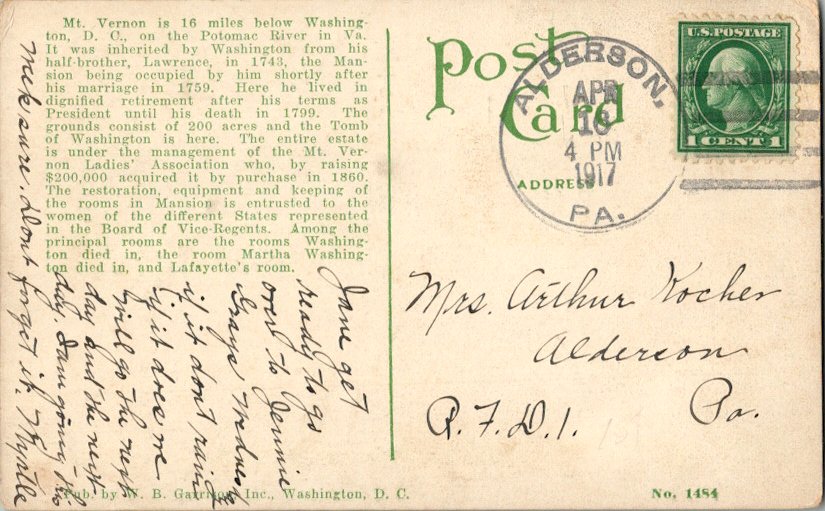 Mt. Vernon is 16 miles below Washing-
ton, D. C., on the Potomac River in Va.
It was inherited by Washington from his
half-brother, Lawrence, in 1743, the Man-
sion being occupied by him shortly after
his marriage in 1759. Here he lived in
dignified retirement after his terms as
President until his death in 1799. The
grounds consist of 200 acres and the Tomb
of Washington is here. The entire estate
is under the management of the Mt. Ver-
non Ladies' Association who, by raising
$200,000 acquired it by purchase in 1860.
The restoration, equipment and keeping of
the rooms in Mansion is entrusted to the
women of the different States represented
in the Board of Vice-Regents. Among the
principal rooms are the rooms Washing-
ton died in, the room Martha Washington
ton died in, and Lafayette's room.
Jane get
ready to go
over to Jennie
Grays Wednesday
if it dont rain &
if it does we
will go the next
day and the next
day. I am going this
week sure. Dont forget it. Myrtle
Post Card
ADDRESS
ALDERSON,
APR
18
4 PM
1917
PA.
U.S. POSTAGE
1 CENT 1
Mrs. Arthur Kocher
Alderson
R.F.D.1. Pa.
Pub. by W. B. Garrison Inc., Washington, D. C.
No. 1484